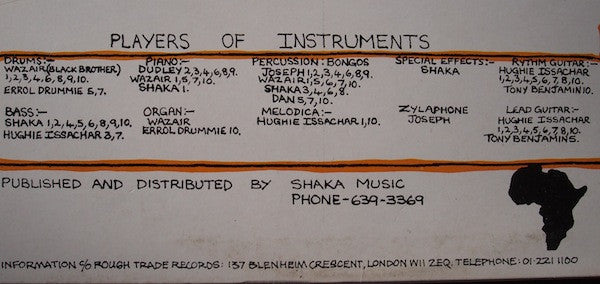 PLAYERS OF INSTRUMENTS
DRUMS:-
WAZAIR (BLACK BROTHER)
1,2,3,4,6,8,9,10.
ERROL DRUMMIE 5,7.
PIANO:-
DUDLEY 2,3,4,6,8,9.
WAZAIR 1,5,7,10.
SHAKA 1.
PERCUSSION: BONGOS
JOSEPH 1,2,3,4,6,8,9.
WAZAIR 1,5,6,7,10.
SHAKA 3,4,6,8.
DAN 5,7,10.
SPECIAL EFFECTS:-
SHAKA
RYTHM GUITAR:-
HUGHIE ISSACHAR
1,2,3,4,5,6,7,8,10.
TONY BENJAMIN 10.
BASS:-
SHAKA 1,2,4,5,6,8,9,10.
HUGHIE ISSACHAR 3,7.
ORGAN:-
WAZAIR
ERROL DRUMMIE 10.
MELODICA:-
HUGHIE ISSACHAR 1,10.
ZYLAPHONE
JOSEPH
LEAD GUITAR:-
HUGHIE ISSACHAR
1,2,3,4,5,6,7,8,10.
TONY BENJAMIN 5.
PUBLISHED AND DISTRIBUTED BY SHAKA MUSIC
PHONE-639-3369
INFORMATION C/O ROUGH TRADE RECORDS: 137 BLENHEIM CRESCENT, LONDON W11 2EQ. TELEPHONE: 01-221 1100